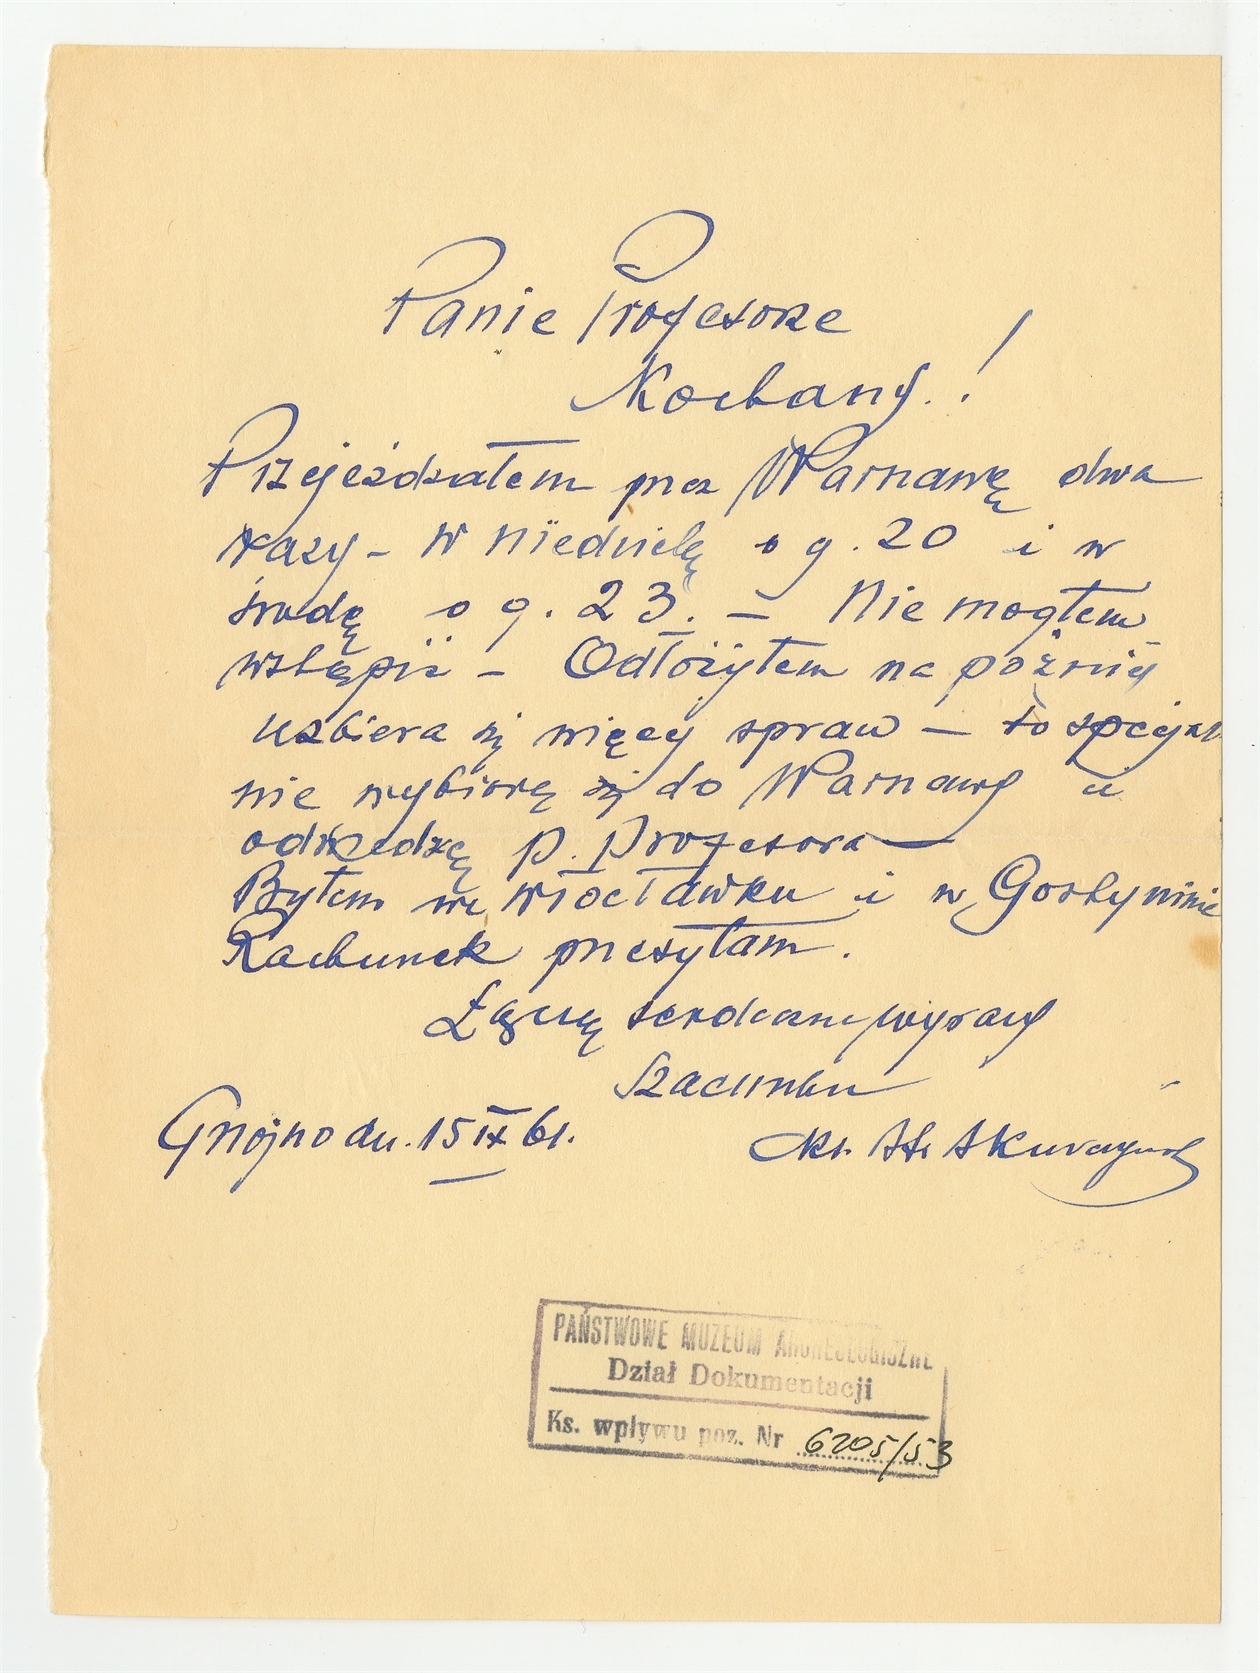 Panie Profesorze
Kochany!
Przejeżdżałem przez Warszawę dwa
razy – w niedzielę o g. 20 i w
środę o g. 23. – Nie mogłem
wstąpić – Odłożyłem na późnij
uzbiera się więcej spraw – to specjal
nie wybiorę się do Warszawy i
odwiedzę p. Profesora –
Byłem we Włocławku i w Gostyninie
Rachunek przesyłam.
Łączę serdeczne wyrazy
szacunku
Gnojno dn. 15 IX 61.
Ks. St. Skurczyński
PAŃSTWOWE MUZEUM ARCHEOLOGICZNE
Dział Dokumentacji
Ks. wpływu poz. Nr 6205/53